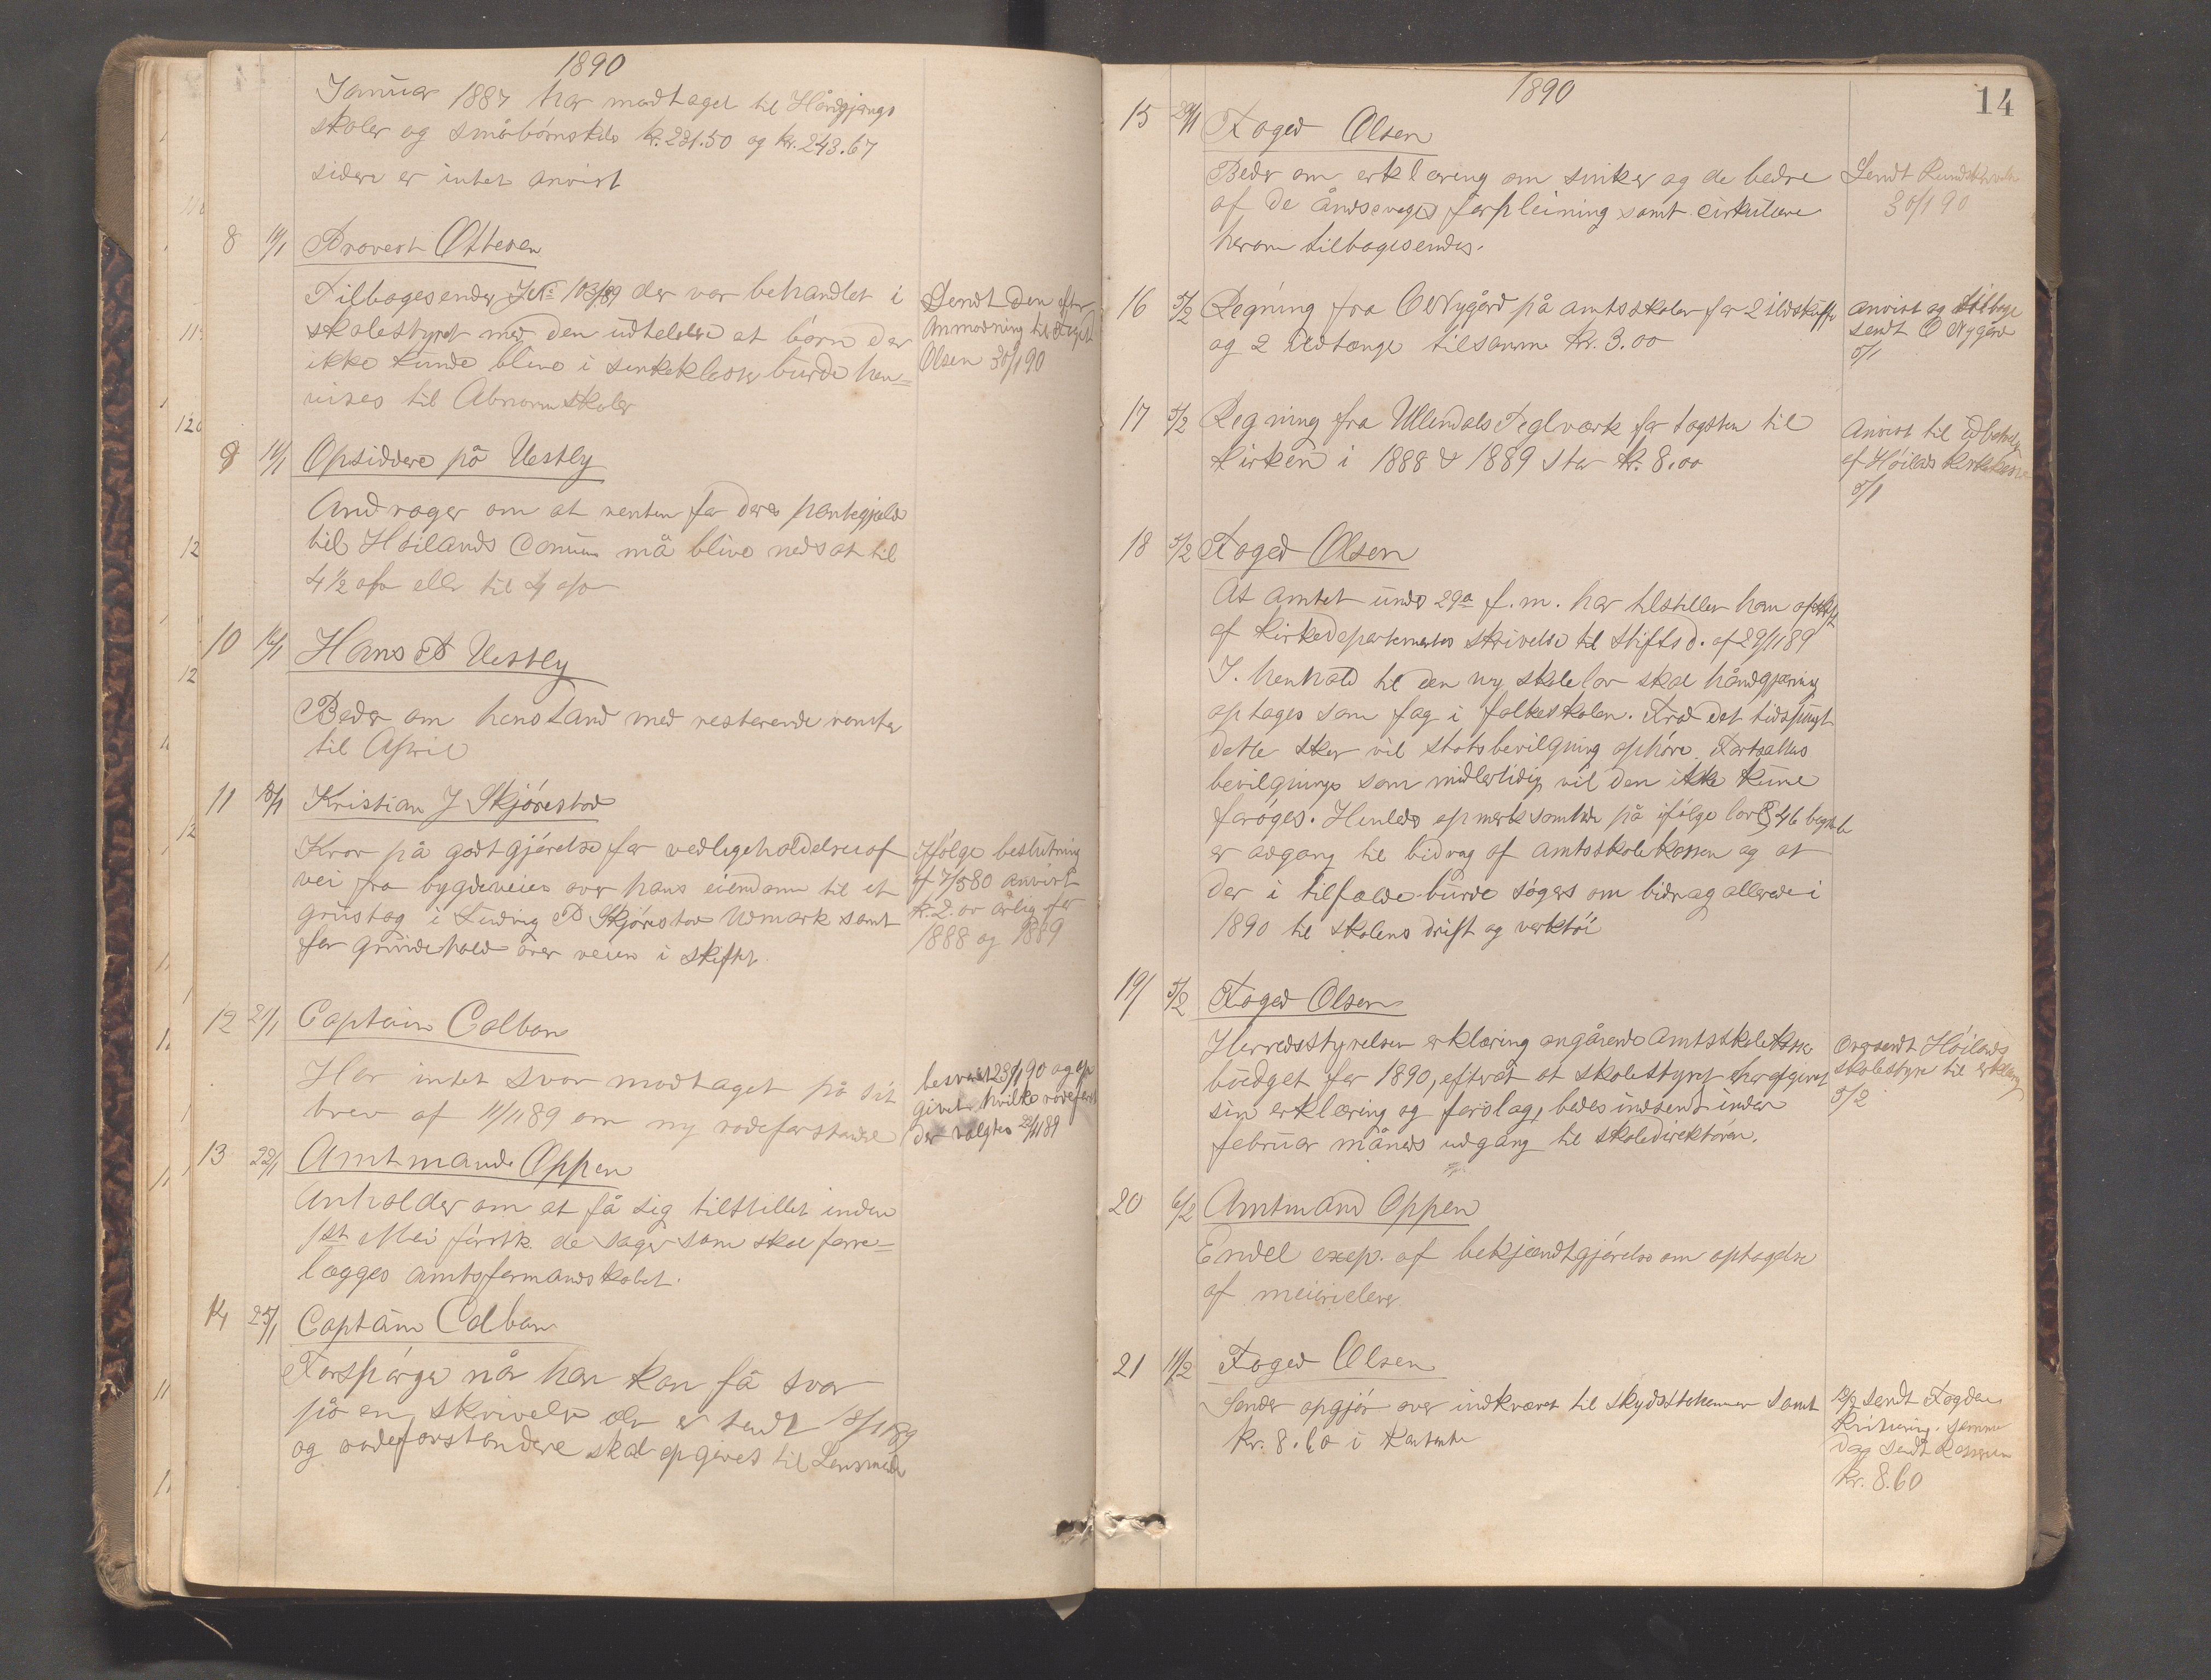 1890
Januar 1887 har modtaget til Håndgjernings
skoler og småbørnskole kr. 231.50 og kr. 243.67
sidere er intet anvist
8 11/1 Provst Ottesen
Tilbagesender JNo 103/89 der var behandlet i
skolestyret med den udtelelse at børn der
ikke kunde blive i sinkeklasse burde hen=
vises til Abnormskoler
Sendt den efter
Anmodning til Foged
Olsen 30/1 90
9 14/1 Opsiddere på Vestly
Andrager om at renten for deres pantegjæld
til Høilands Comune må blive nedsat til
4 1/2 o/o eller til 4 o/o
10 16/1 Hans P Vestly
Beder om henstand med resterende renter
til April
11 18/1 Kristian J Skjørestad
Krav på godtgjørelse for vedligeholdelse af
vei fra bygdeveien over hans eiendom til et
grustag i Ludvig P Skjørestad Udmark samt
for grindehold over veien i skiftet.
Ifølge beslutning
af 7/5 80 anvist
kr. 2.00 årlig for
1888 og 1889
12 21/1 Captain Colban
Har intet svar modtaget på sit
brev af 11/11 89 om ny rodeforstander
besvaret 23/1 90 og op
givet hvilke rodeforst
der valgtes 22/11 89
13 22/1 Amtmand Oppen
Anholder om at få sig tilstillet inden
1st Mai førstk. de sager som skal fore=
lægges amtsformandskabet.
14 25/1 Captain Colban
Forspørger når han kan få svar
på en skrivelse der er sendt 18/11 89
og rodeforstandere skal opgives til Lensmand
1890
14
15 29/1 Foged Olsen
Beder om erklæring om sinker og de bedre
af de åndssvages forpleining samt cirkulære
herom tilbagesendes.
Sendt
30/1 90
16 5/2 Regning fra O Nygård på amtsskolen for 2 ildskuffer
og 2 ildtænger tilsamme kr. 3.00
anvist og tilbage
sendt O Nygård
5/1
17 5/2 Regning fra Ullendals Teglværk for tagsten til
kirken i 1888 & 1889 stor kr. 8.00
Anvist til udbetaling
af Høilands Kirkekasse
5/1
18 5/2 Foged Olsen
At amtet under 29a f.m. har tilstillet ham afskrift
af Kirkedepartementes skrivelse til Stiftsd. af 29/11 89
I henhold til den ny skolelov skal håndgjerning
optages som fag i folkeskolen. Fra det tidspunkt
dette sker vil statsbevilgning ophøre. Fortsættes
bevilgninge som midlertidig vil den ikke kunne
forøges. Henledes opmerksomhed på ifølge lov § 46
er adgang til bidrag af amtsskolekassen og at
der i tilfælde burde søges om bidrag allerede i
1890 til skolens drift og verktøi
19/ 5/2 Foged Olsen
Herredsstyrelsen erklæring angående Amtsskolekassens
budget for 1890, efterat at skolestyret har afgivet
sin erklæring og forslag, bedes indsendt inden
februar måneds udgang til skoledirektøren.
Oversendt Høilands
skolestyre til erklæring
5/2
20 6/2 Amtmand Oppen
Endel exep. af bekjendtgjørelse om optagelse
af meierielever
21 11/2 Foged Olsen
Sender opgjør over indkrævet til skydsstationer samt
kr. 8.60 i kontante
12/2 sendt Fogden
kvittering. samme
dag sendt Kassereren
kr. 8.60